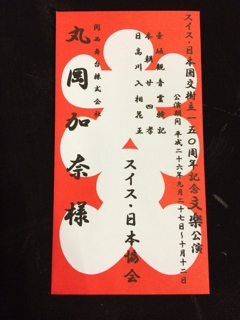 スイス・日本国交樹立一五〇周年記念文楽公演
公演期間 平成二十六年九月二十七日〜十月十二日
壺坂観音霊験記
本朝廿四孝
日高川入相花王
スイス・日本協会
関西舞台株式会社
丸岡加奈様